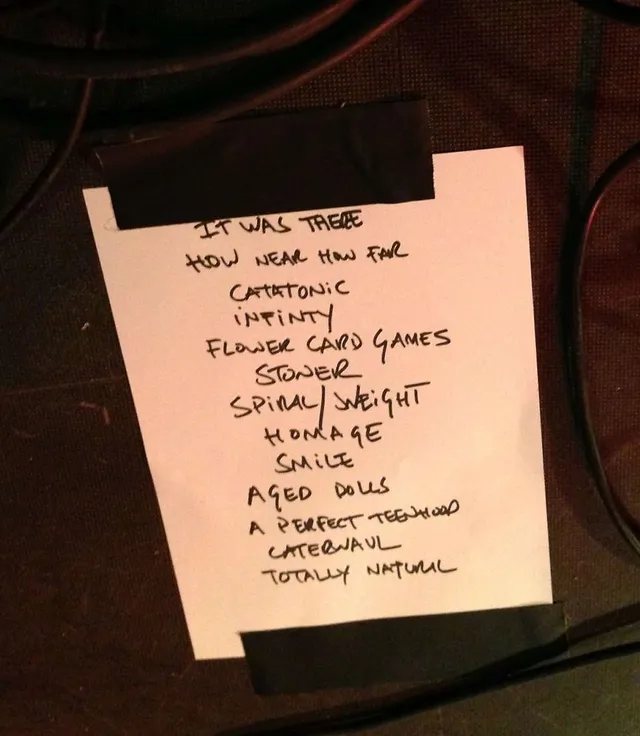 IT WAS THERE
HOW NEAR HOW FAR
CATATONIC
INFINTY
FLOWER CARD GAMES
STONER
SPIRAL/WEIGHT
HOMAGE
SMILE
AGED DOLLS
A PERFECT TEENHOOD
CATERWAUL
TOTALLY NATURAL